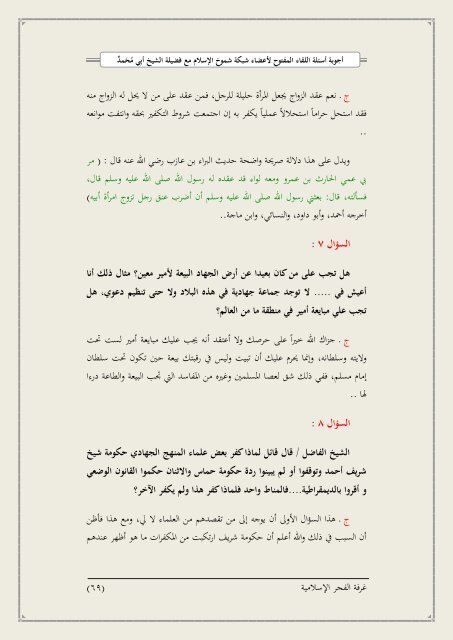 أجوبة أسئلة اللقاء المفتوح لأعضاء شبكة شموخ الإسلام مع فضيلة الشيخ أبي مُحمدٌ
ج . نعم عقد الزواج يجعل المرأة حليلة للرجل، فمن عقد على من لا يحل له الزواج منه
فقد استحل حراماً استحلالاً عملياً يكفر به إن اجتمعت شروط التكفير بحقه وانتفت موانعه
..
ويدل على هذا دلالة صريحة واضحة حديث البراء بن عازب رضي الله عنه قال : ( مر
بي عمي الحارث بن عمرو ومعه لواء قد عقده له رسول الله صلى الله عليه وسلم قال،
فسألته، قال: بعثني رسول الله صلى الله عليه وسلم أن أضرب عنق رجل تزوج امرأة أبيه)
أخرجه أحمد، وأبو داود، والنسائي، وابن ماجة..
السؤال ٧ :
هل تجب على من كان بعيدا عن أرض الجهاد البيعة لأمير معين؟ مثال ذلك أنا
أعيش في ..... لا توجد جماعة جهادية في هذه البلاد ولا حتى تنظيم دعوي، هل
تجب علي مبايعة أمير في منطقة ما من العالم؟
ج . جزاك الله خيراً على حرصك ولا أعتقد أنه يجب عليك مبايعة أمير لست تحت
ولايته وسلطانه، وإنما يحرم عليك أن تبيت وليس في رقبتك بيعة حين تكون تحت سلطان
إمام مسلم، ففي ذلك شق لعصا المسلمين وغيره من المفاسد التي تجب البيعة والطاعة درءا
لها ..
السؤال ٨ :
الشيخ الفاضل / قال قائل لماذا كفر بعض علماء المنهج الجهادي حكومة شيخ
شريف أحمد وتوقفوا أو لم يبينوا ردة حكومة حماس والاثنان حكموا القانون الوضعي
و أقروا بالديمقراطية....فالمناط واحد فلماذا كفر هذا ولم يكفر الآخر؟
ج . هذا السؤال الأولى أن يوجه إلى من تقصدهم من العلماء لا لي، ومع هذا فأظن
أن السبب في ذلك والله أعلم أن حكومة شريف ارتكبت من المكفرات ما هو أظهر عندهم
غرفة الفجر الإسلامية
(٦٩)